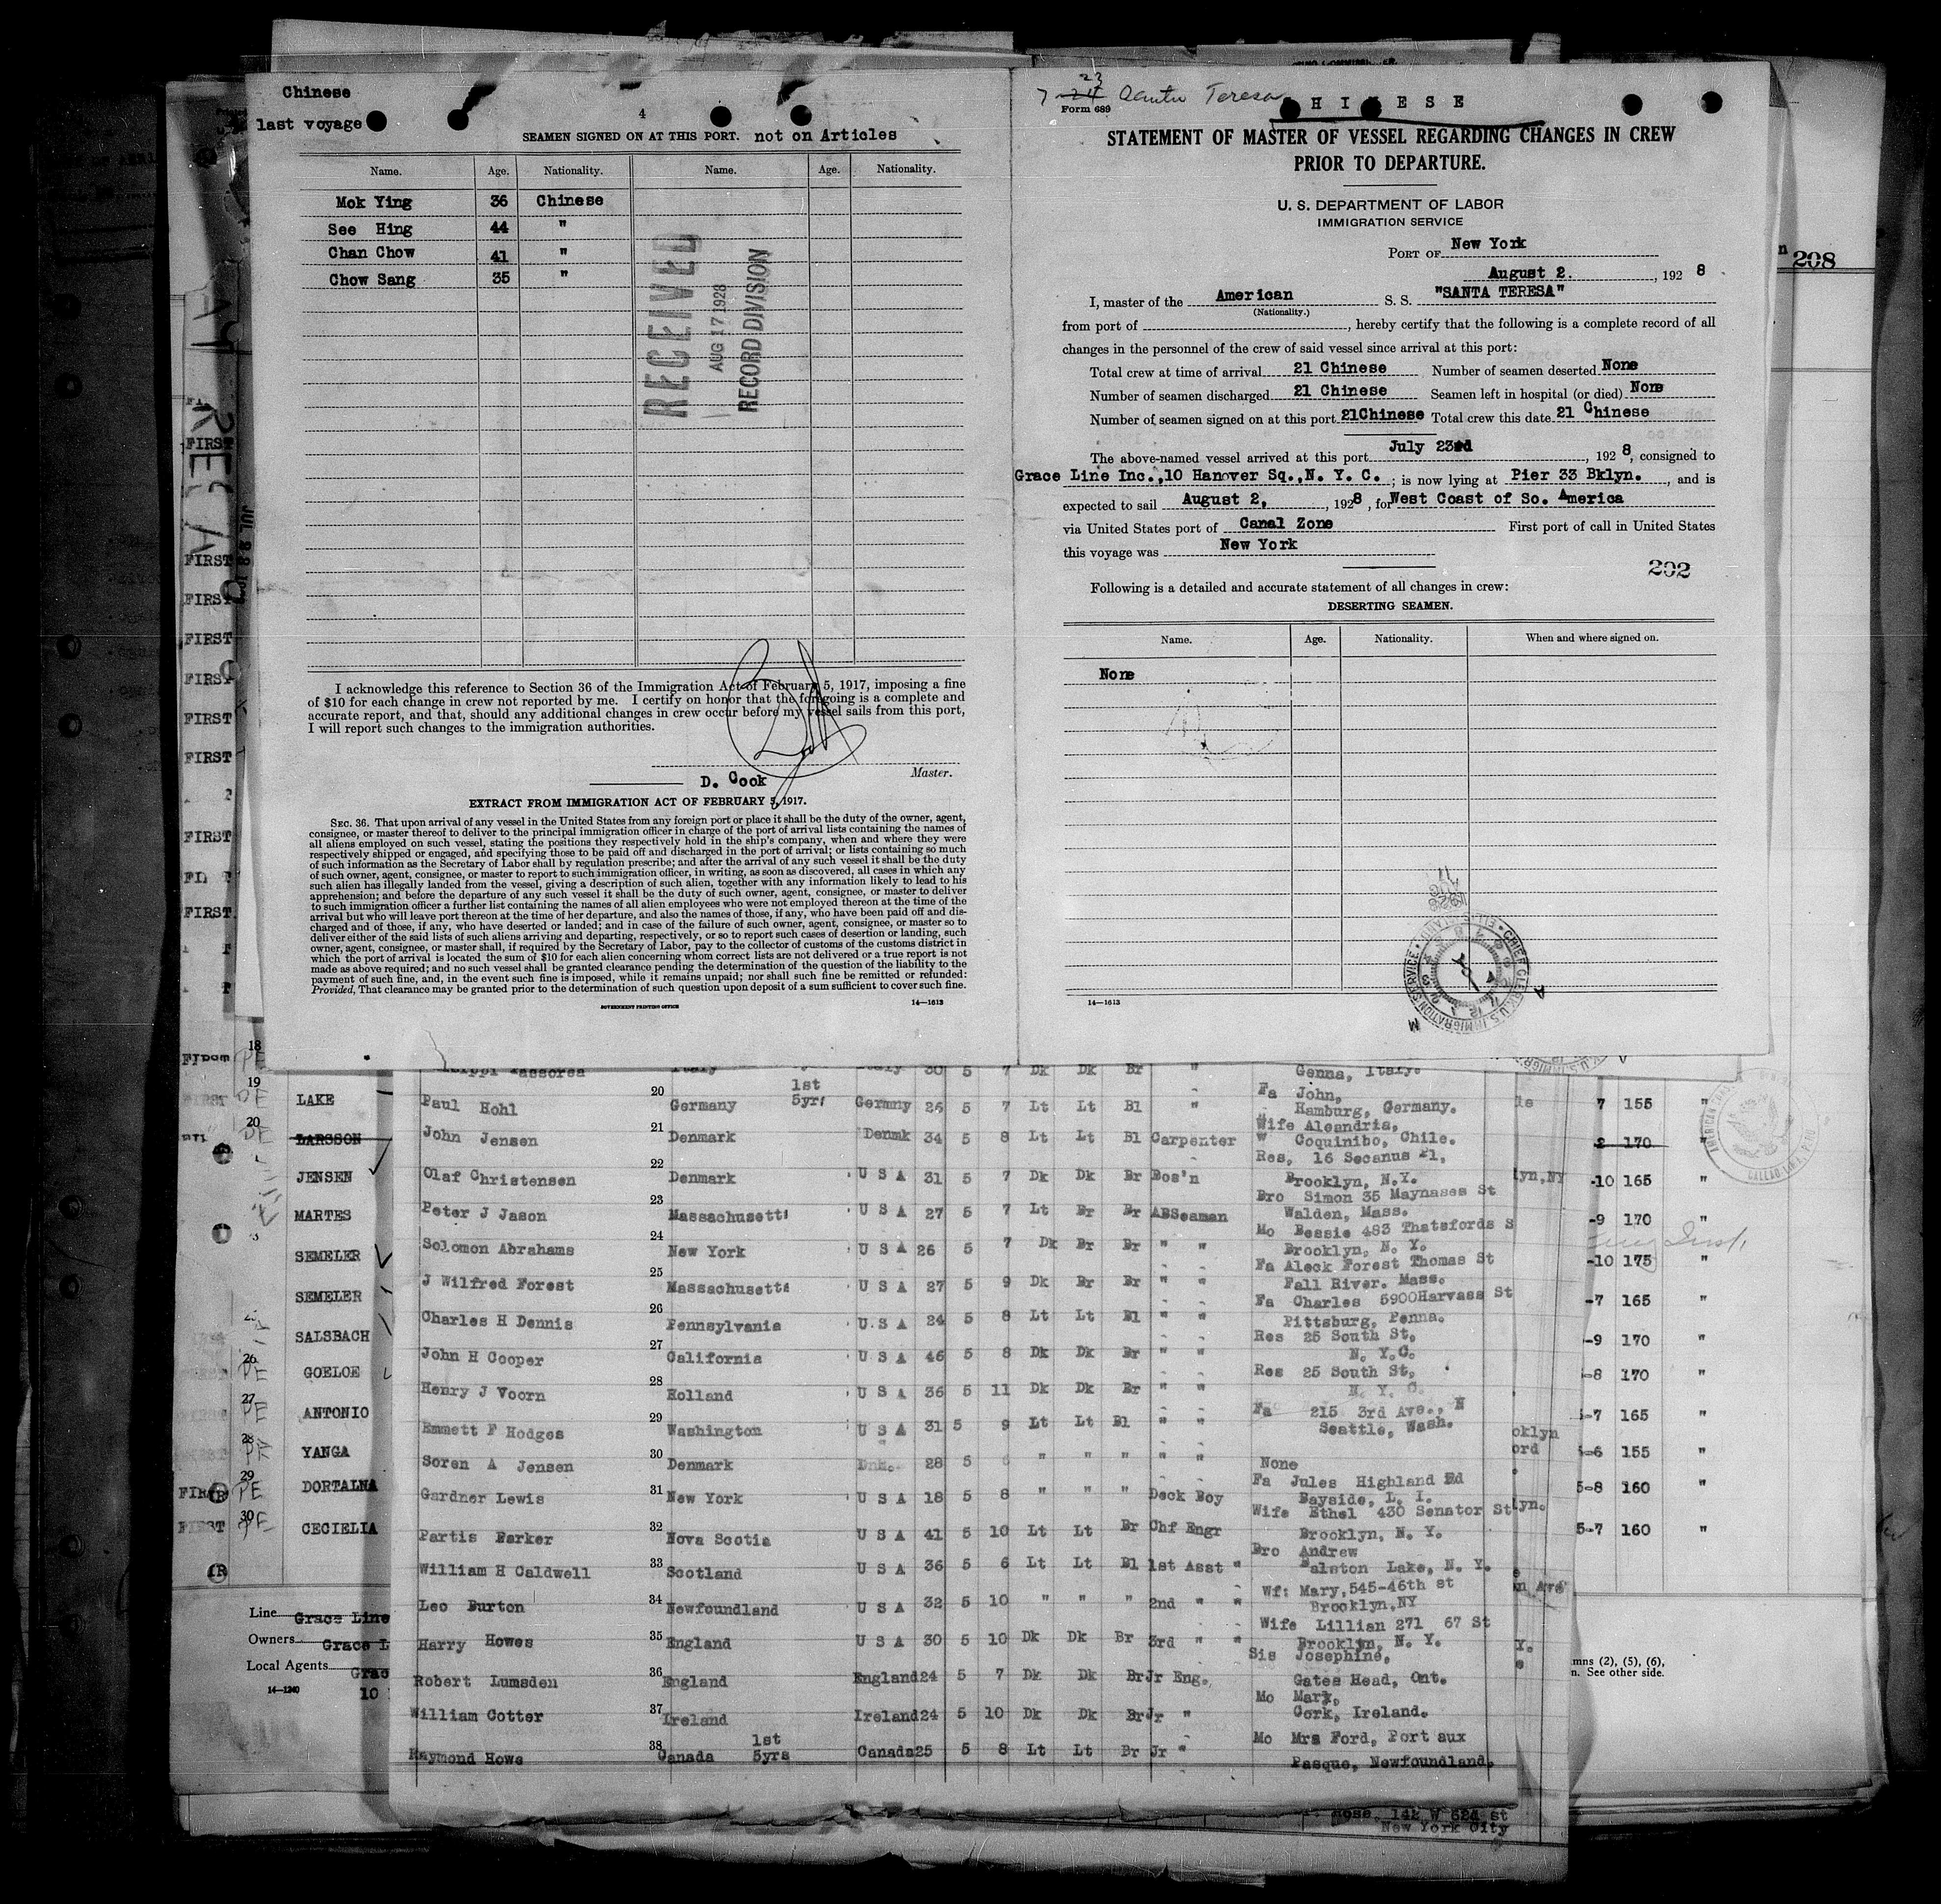 Chinese
last voyage
4
SEAMEN SIGNED ON AT THIS PORT. not on Articles
Name. Age. Nationality. Name. Age. Nationality.
Mok Ying 36 Chinese
See Hing 44 "
Chan Chow 41 "
Chow Sang 35 "
RECEIVED
AUG 17 1928
RECORD DIVISION
I acknowledge this reference to Section 36 of the Immigration Act of February 5, 1917, imposing a fine
of $10 for each change in crew not reported by me. I certify on honor that the foregoing is a complete and
accurate report, and that, should any additional changes in crew occur before my vessel sails from this port,
I will report such changes to the immigration authorities.
D. Cook Master.
EXTRACT FROM IMMIGRATION ACT OF FEBRUARY 5, 1917.
SEC. 36. That upon arrival of any vessel in the United States from any foreign port or place it shall be the duty of the owner, agent,
consignee, or master thereof to deliver to the principal immigration officer in charge of the port of arrival lists containing the names of
all aliens employed on such vessel, stating the positions they respectively hold in the ship's company, when and where they were
respectively shipped or engaged, and specifying those to be paid off and discharged in the port of arrival; or lists containing so much
of such information as the Secretary of Labor shall by regulation prescribe; and after the arrival of any such vessel it shall be the duty
of such owner, agent, consignee, or master to report to such immigration officer, in writing, as soon as discovered, all cases in which any
such alien has illegally landed from the vessel, giving a description of such alien, together with any information likely to lead to his
apprehension; and before the departure of any such vessel it shall be the duty of such owner, agent, consignee, or master to deliver
to such immigration officer a further list containing the names of all alien employees who were not employed thereon at the time of the
arrival but who will leave port thereon at the time of her departure, and also the names of those, if any, who have been paid off and dis-
charged and of those, if any, who have deserted or landed; and in case of the failure of such owner, agent, consignee, or master so to
deliver either of the said lists of such aliens arriving and departing, respectively, or so to report such cases of desertion or landing, such
owner, agent, consignee, or master shall, if required by the Secretary of Labor, pay to the collector of customs of the customs district in
which the port of arrival is located the sum of $10 for each alien concerning whom correct lists are not delivered or a true report is not
made as above required; and no such vessel shall be granted clearance pending the determination of the question of the liability to the
payment of such fine, and, in the event such fine is imposed, while it remains unpaid; nor shall such fine be remitted or refunded:
Provided, That clearance may be granted prior to the determination of such question upon deposit of a sum sufficient to cover such fine.
GOVERNMENT PRINTING OFFICE 14—1613
7 24 23 Santa Teresa
Form 689
CHINESE
STATEMENT OF MASTER OF VESSEL REGARDING CHANGES IN CREW
PRIOR TO DEPARTURE.
U. S. DEPARTMENT OF LABOR
IMMIGRATION SERVICE
PORT OF New York
August 2. , 192 8
I, master of the American S. S. "SANTA TERESA"
(Nationality.)
from port of , hereby certify that the following is a complete record of all
changes in the personnel of the crew of said vessel since arrival at this port:
Total crew at time of arrival 21 Chinese Number of seamen deserted None
Number of seamen discharged 21 Chinese Seamen left in hospital (or died) None
Number of seamen signed on at this port 21Chinese Total crew this date 21 Chinese
The above-named vessel arrived at this port July 23rd , 192 8, consigned to
Grace Line Inc.,10 Hanover Sq.,N. Y. C. ; is now lying at Pier 33 Bklyn. , and is
expected to sail August 2, , 1928 , for West Coast of So. America
via United States port of Canal Zone First port of call in United States
this voyage was New York
202
Following is a detailed and accurate statement of all changes in crew:
DESERTING SEAMEN.
Name. Age. Nationality. When and where signed on.
None
14—1613
CHIEF CLERK, U.S. IMMIGRATION SERVICE
208
Genna, Italy.
LAKE Paul Hohl 20 Germany 1st 5yr Germny 26 5 7 Lt Lt Bl " Fa John, Hamburg, Germany. 7 155 "
LARSSON John Jensen 21 Denmark Denmk 34 5 8 Lt Lt Bl Carpenter Wife Aleandria, Coquinibo, Chile. 170
JENSEN Olaf Christensen 22 Denmark U S A 31 5 7 Dk Dk Br Bos'n Res, 16 Secanus Pl, Brooklyn, N.Y. lyn,NY -10 165 "
MARTES Peter J Jason 23 Massachusetts U S A 27 5 7 Lt Br Br ABSeaman Bro Simon 35 Maynases St Walden, Mass. -9 170 "
SEMELER Solomon Abrahams 24 New York U S A 26 5 7 Dk Br Br " " Mo Bessie 483 Thatsfords S Brooklyn, N. Y. -10 175 "
SEMELER J Wilfred Forest 25 Massachusetts U S A 27 5 9 Dk Br Br " " Fa Aleck Forest Thomas St Fall River. Mass. -7 165 "
SALSBACH Charles H Dennis 26 Pennsylvania U.S A 24 5 8 Lt Lt Bl " " Fa Charles 5900Harvass St Pittsburg, Penna. -9 170 "
GOELOE John H Cooper 27 California U S A 46 5 8 Dk Dk Br " " Res 25 South St, N. Y.C. -8 170 "
ANTONIO Henry J Voorn 28 Holland U S A 36 5 11 Dk Dk Br " " Res 25 South St, N. Y. C. -7 165 "
YANGA Emmett F Hodges 29 Washington U S A 31 5 9 Lt Lt Bl " " Fa 215 3rd Ave., N Seattle, Wash. oklyn -6 155 "
DORTALNA Soren A Jensen 30 Denmark 28 5 " " " " " None ord 5-8 160 "
CECIELIA Gardner Lewis 31 New York U S A 18 5 8 " " " Deck Boy Fa Jules Highland Rd Bayside, L. I. lyn. 5-7 160 "
Partis Parker 32 Nova Scotia U S A 41 5 10 Lt Lt Br Chf Engr Wife Ethel 430 Senator St Brooklyn, N. Y.
William H Caldwell 33 Scotland U S A 36 5 6 Lt Lt Bl 1st Asst " Bro Andrew Balston Lake, N. Y.
Leo Burton 34 Newfoundland U S A 32 5 10 " " " 2nd " " Wf: Mary,545-46th st Brooklyn,NY
Harry Howes 35 England U S A 30 5 10 Dk Dk Br 3rd " " Wife Lillian 271 67 St Brooklyn, N. Y.
Robert Lumsden 36 England England24 5 7 Dk Dk Br Jr Eng. Sis Josephine, Gates Head, Ont.
William Cotter 37 Ireland Ireland24 5 10 Dk Dk Br Jr " Mo Mary, Cork, Ireland.
Raymond Howe 38 Canada 1st 5yrs Canada25 5 8 Lt Lt Br Jr " Mo Mrs Ford, Port aux Pasque, Newfoundland.
Line Grace Line
Owners Grace L
Local Agents Grac
14—1240 10
mns (2), (5), (6),
n. See other side.
Rose, 142 W 62d st
New York City